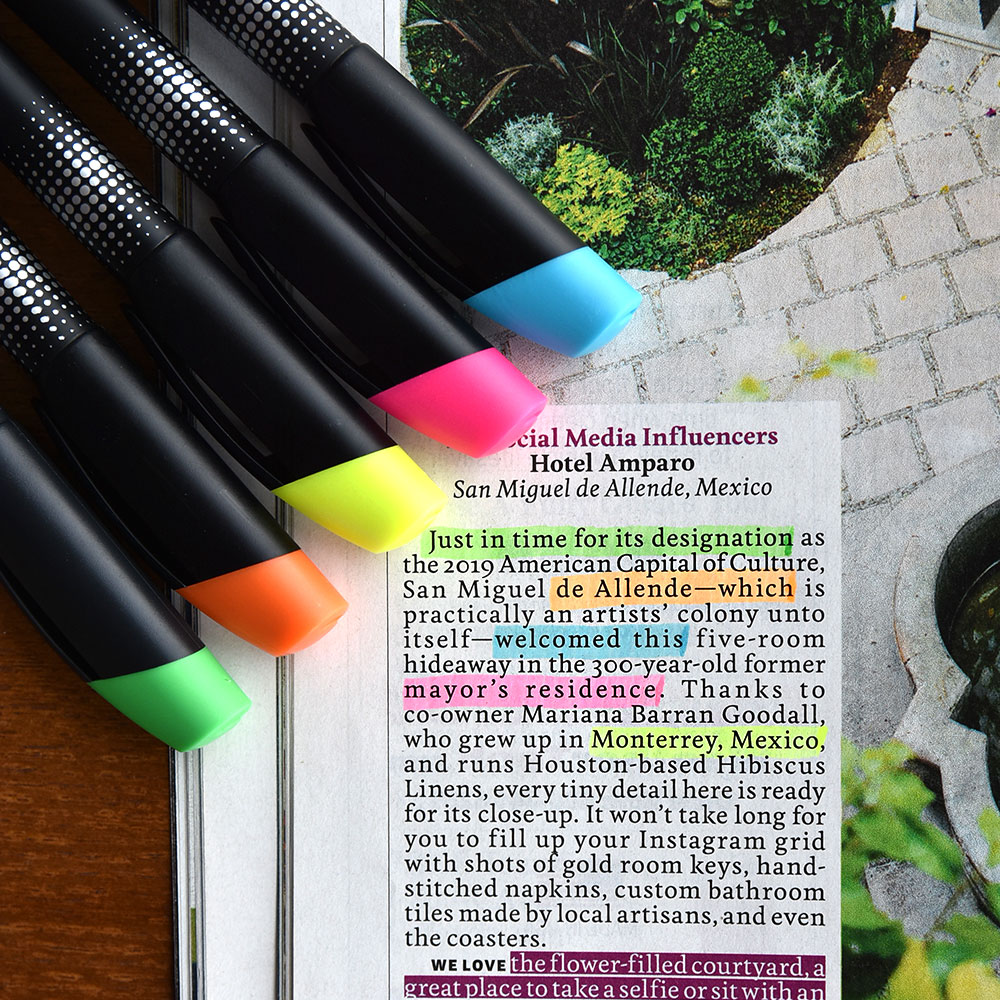 Social Media Influencers
Hotel Amparo
San Miguel de Allende, Mexico
Just in time for its designation as
the 2019 American Capital of Culture,
San Miguel de Allende—which is
practically an artists’ colony unto
itself—welcomed this five-room
hideaway in the 300-year-old former
mayor’s residence. Thanks to
co-owner Mariana Barran Goodall,
who grew up in Monterrey, Mexico,
and runs Houston-based Hibiscus
Linens, every tiny detail here is ready
for its close-up. It won’t take long for
you to fill up your Instagram grid
with shots of gold room keys, hand-
stitched napkins, custom bathroom
tiles made by local artisans, and even
the coasters.
WE LOVE the flower-filled courtyard, a
great place to take a selfie or sit with an